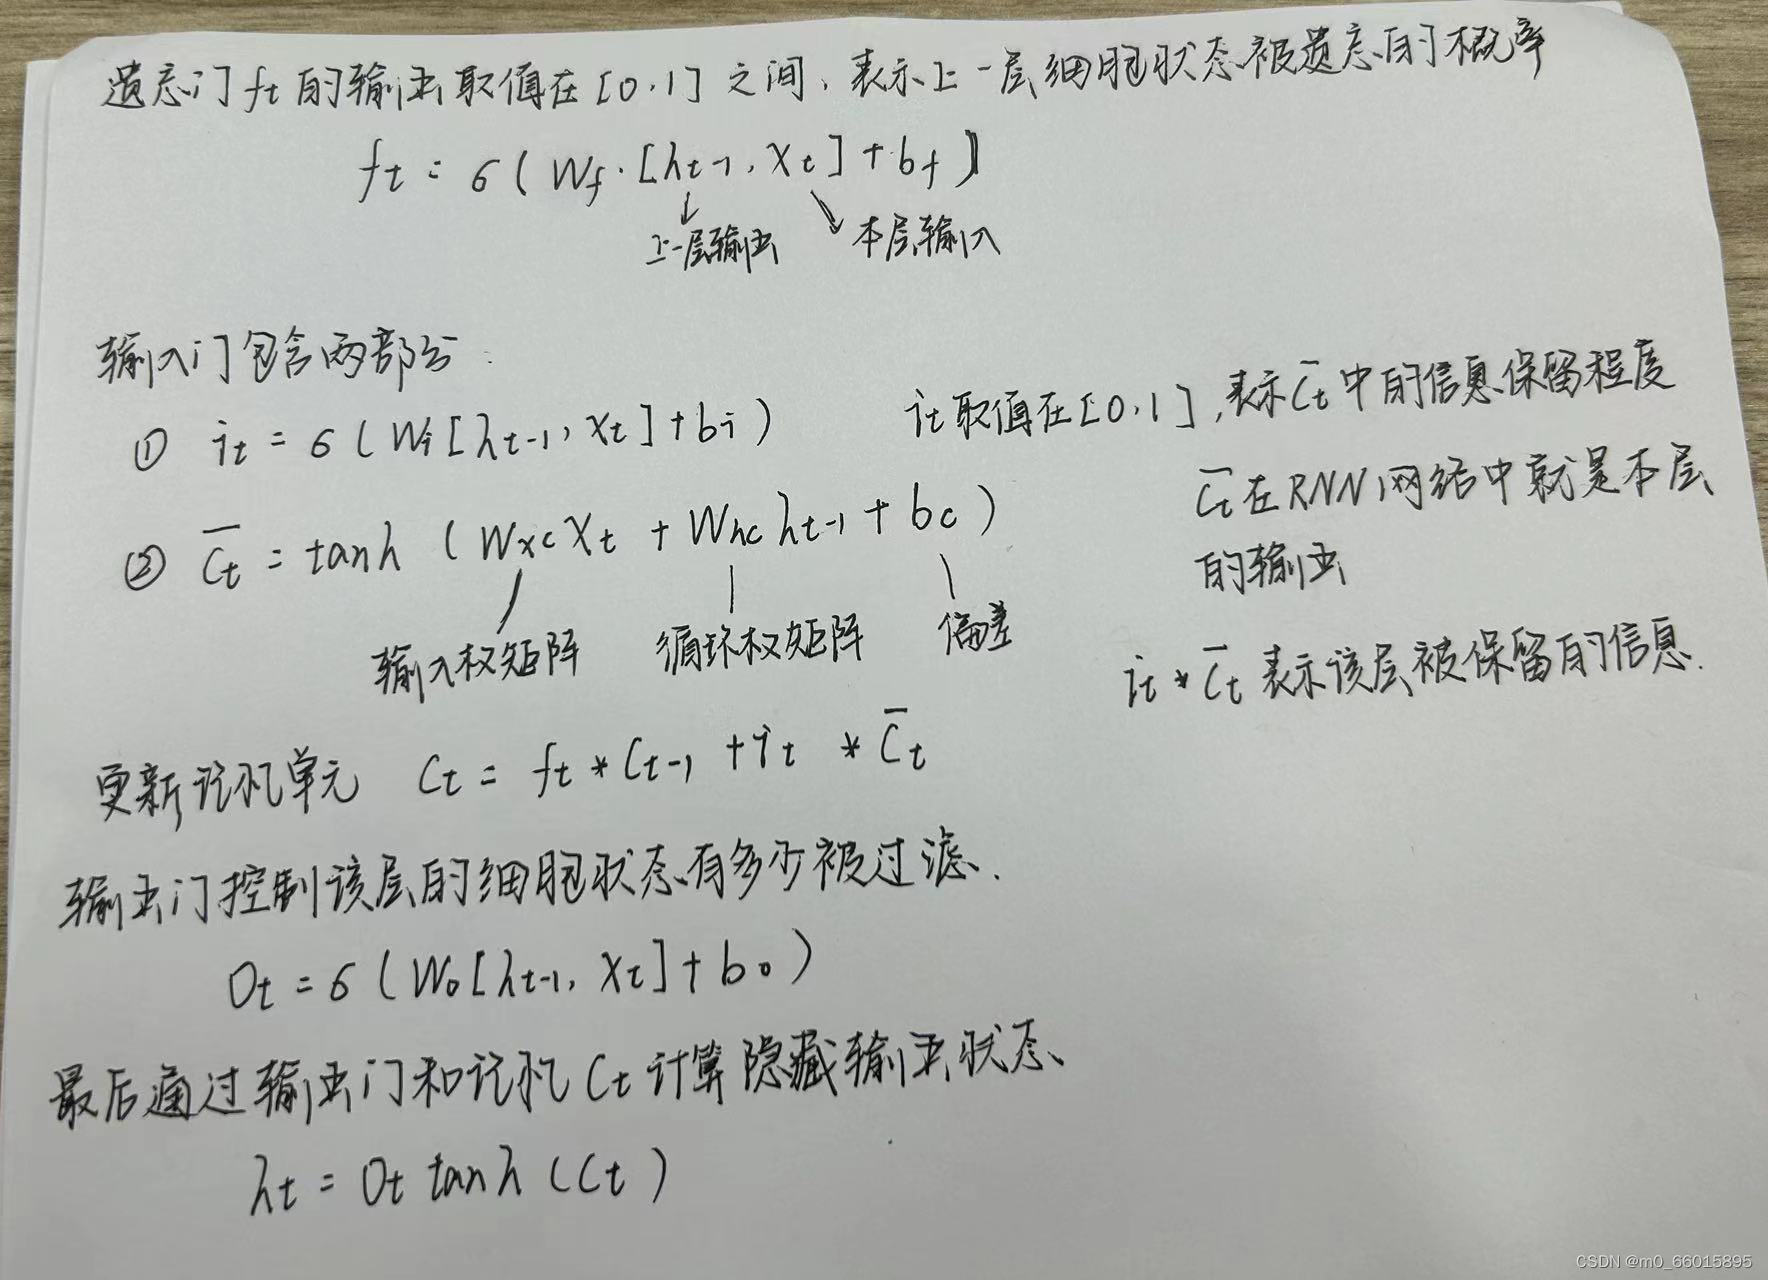 遗忘门 ft 的输出取值在[0,1]之间,表示上一层细胞状态被遗忘的概率
ft = σ(Wf·[ht-1,Xt]+bf)
上一层输出 本层输入
输入门包含两部分:
① it = σ(Wi[ht-1,Xt]+bi)
it取值在[0,1],表示C̅t中的信息保留程度
C̅t在RNN网络中就是本层
的输出
② C̅t = tanh(WxcXt + Whcht-1 + bc)
输入权矩阵 循环权矩阵 偏差
it * C̅t 表示该层被保留的信息.
更新记忆单元 Ct = ft * Ct-1 + it * C̅t
输出门控制该层的细胞状态有多少被过滤.
Ot = σ(Wo[ht-1,Xt]+bo)
最后通过输出门和记忆Ct计算隐藏输出状态
ht = Ot tanh(Ct)
CSDN @m0_66015895